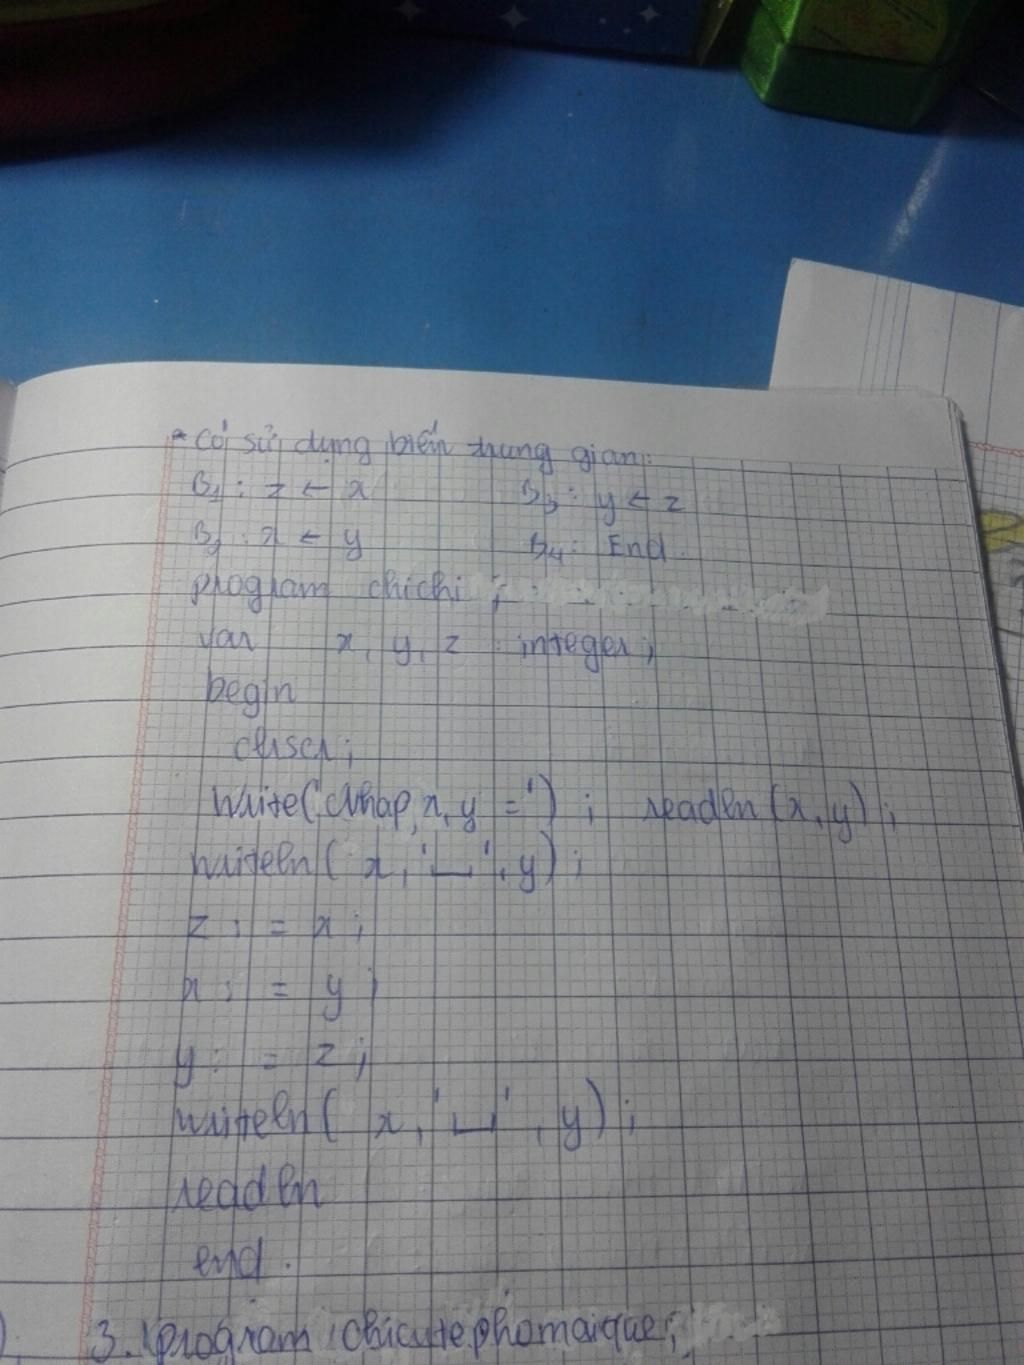 * Có sử dụng biến trung gian:
B1: z ← x B3: y ← z
B2: x ← y B4: End.
program chichi;
var x, y, z : integer;
begin
clrscr;
write('Nhap x, y ='); readln(x, y);
writeln( x, '⎵', y);
z := x;
x := y;
y := z;
writeln( x, '⎵', y);
readln
end.
3. program chicutephomaique;